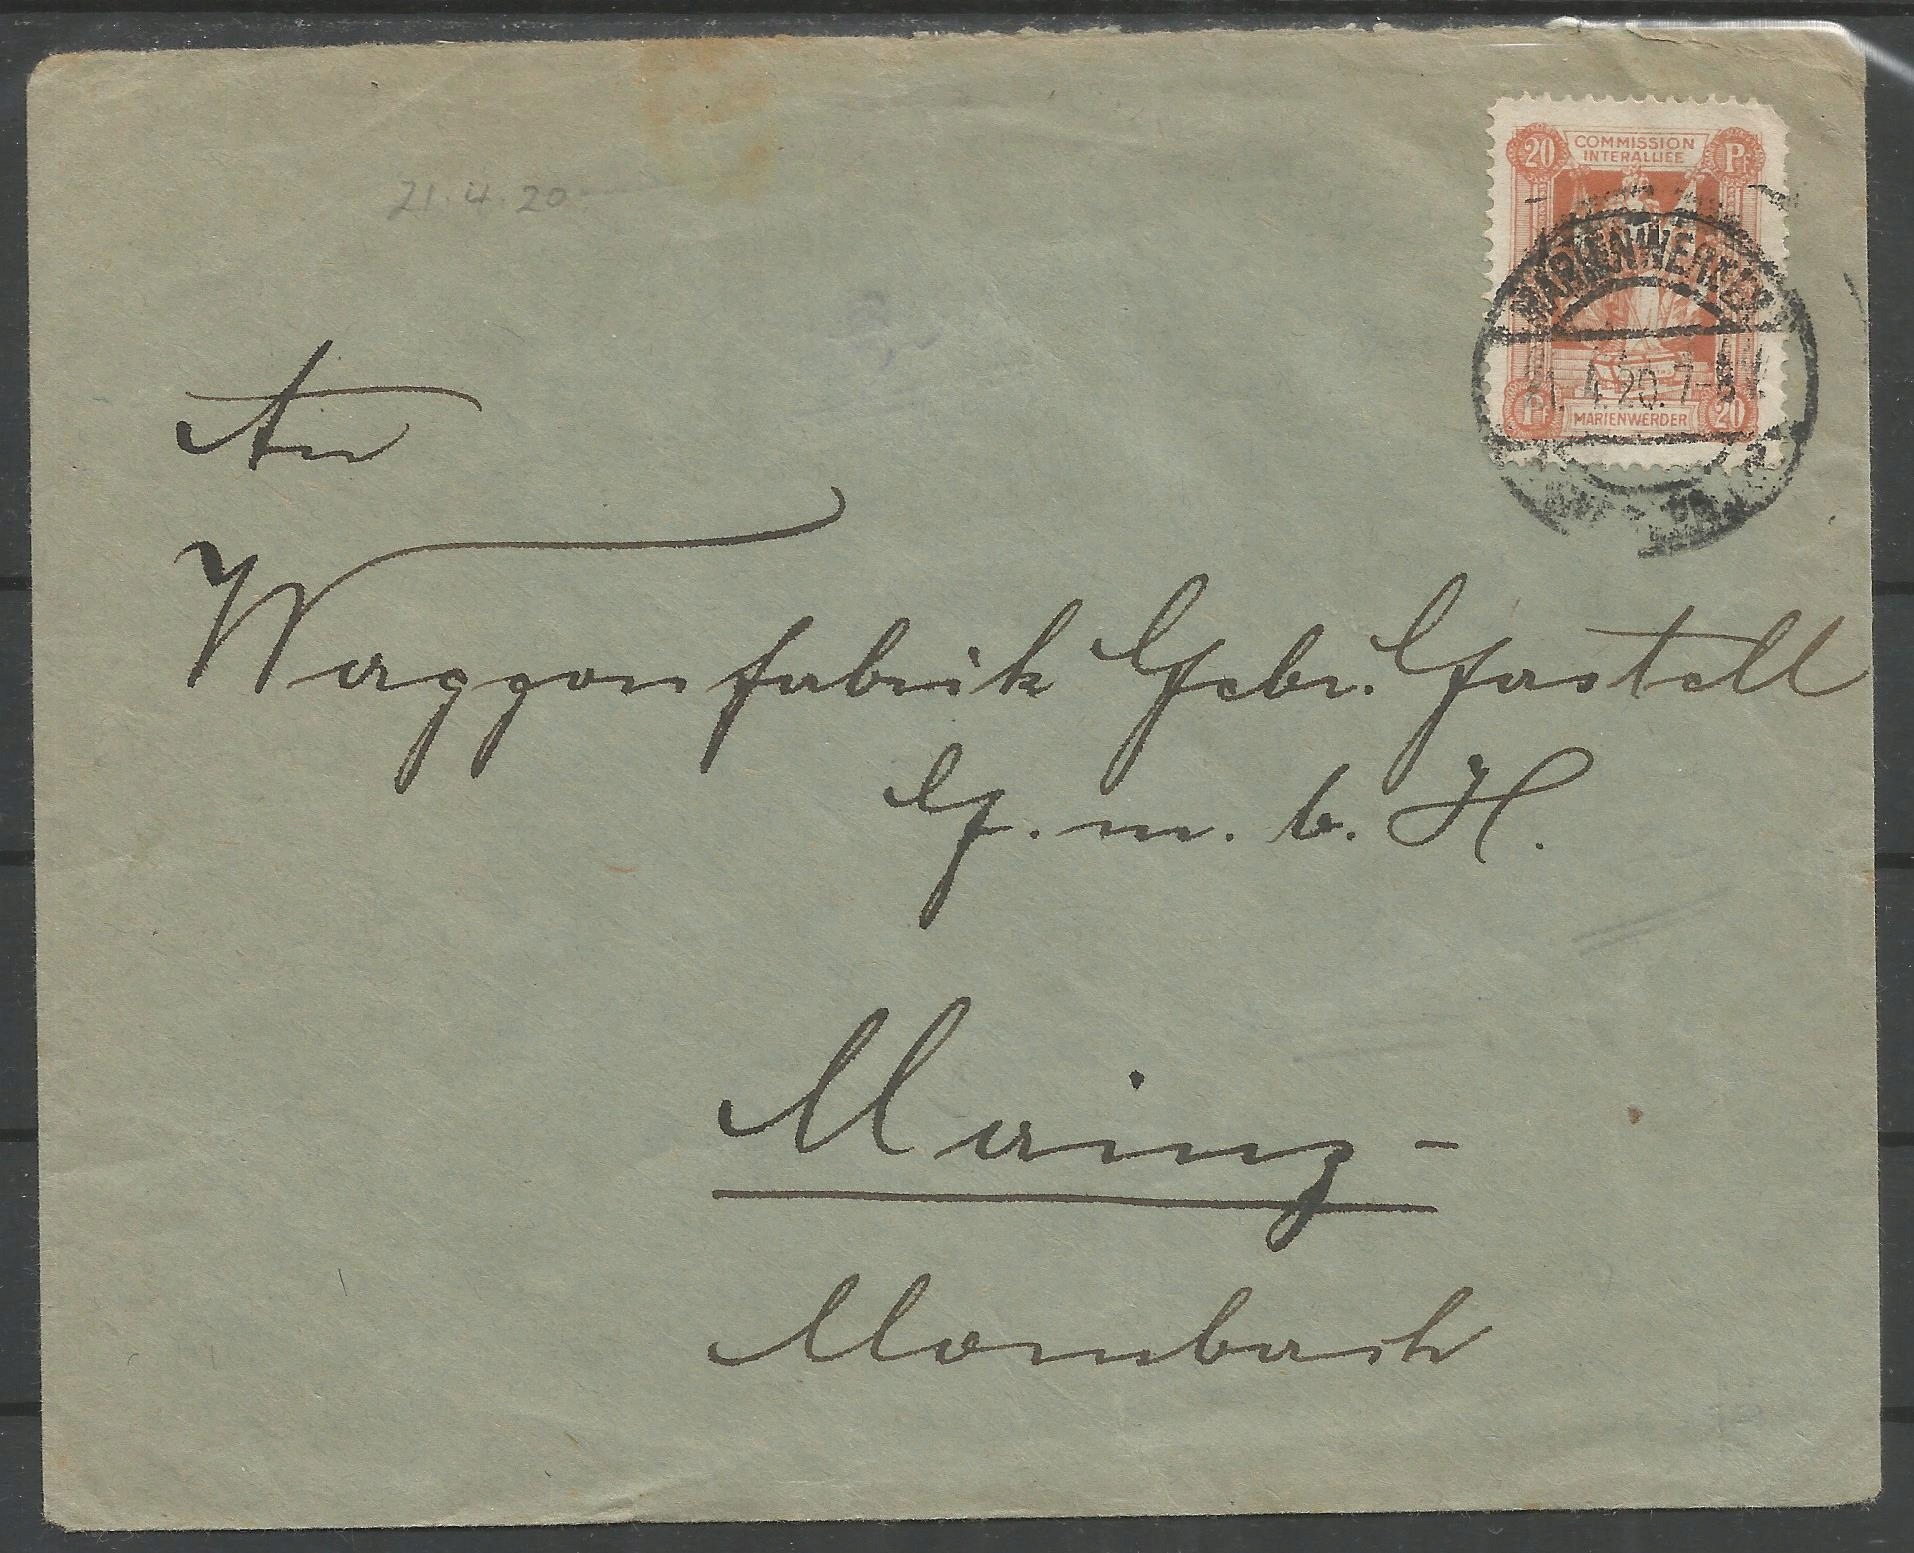 21.4.20
20 COMMISSION INTERALLIÉE Pf
MARIENWERDER
21.4.20.7-8V
Pf MARIENWERDER 20
An
Waggonfabrik Gebr. Gastell
G. m. b. H.
Mainz-
Mombach